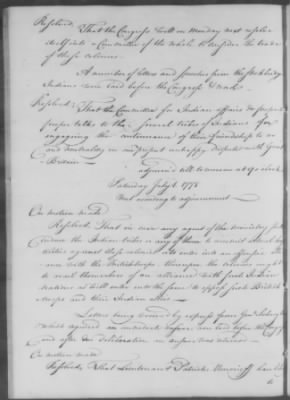 Resolved, That the Congress will on Monday next resolve
itself into a Committee of the whole to consider the trade
of these colonies.
A number of letters and speeches from the Stockbridge
Indians were laid before the Congress & read.
Resolved, That the Committee for Indian affairs do prepare
proper talks to the several tribes of Indians for
engaging the continuance of their friendship to us
and neutrality in our present unhappy dispute with Great
Britain
adjourned till to morrow at 9 o clock
Saturday July 1. 1775
Met according to adjournment
On motion made
Resolved, That in case any agent of the ministry shall
induce the Indian tribes or any of them to commit actual hos
tilities against these colonies or to enter into an offensive alli
ance with the British troops thereupon the colonies ought
to avail themselves of an alliance with such Indian
nations as will enter into the same to oppose such British
troops and their Indian Allies
Letters being received by express from Gen Schuyler
which required an immediate answer were laid before the Congress
and after due deliberation an answer was returned
On motion made
Resolved, That Lieutenant Patrick have
to